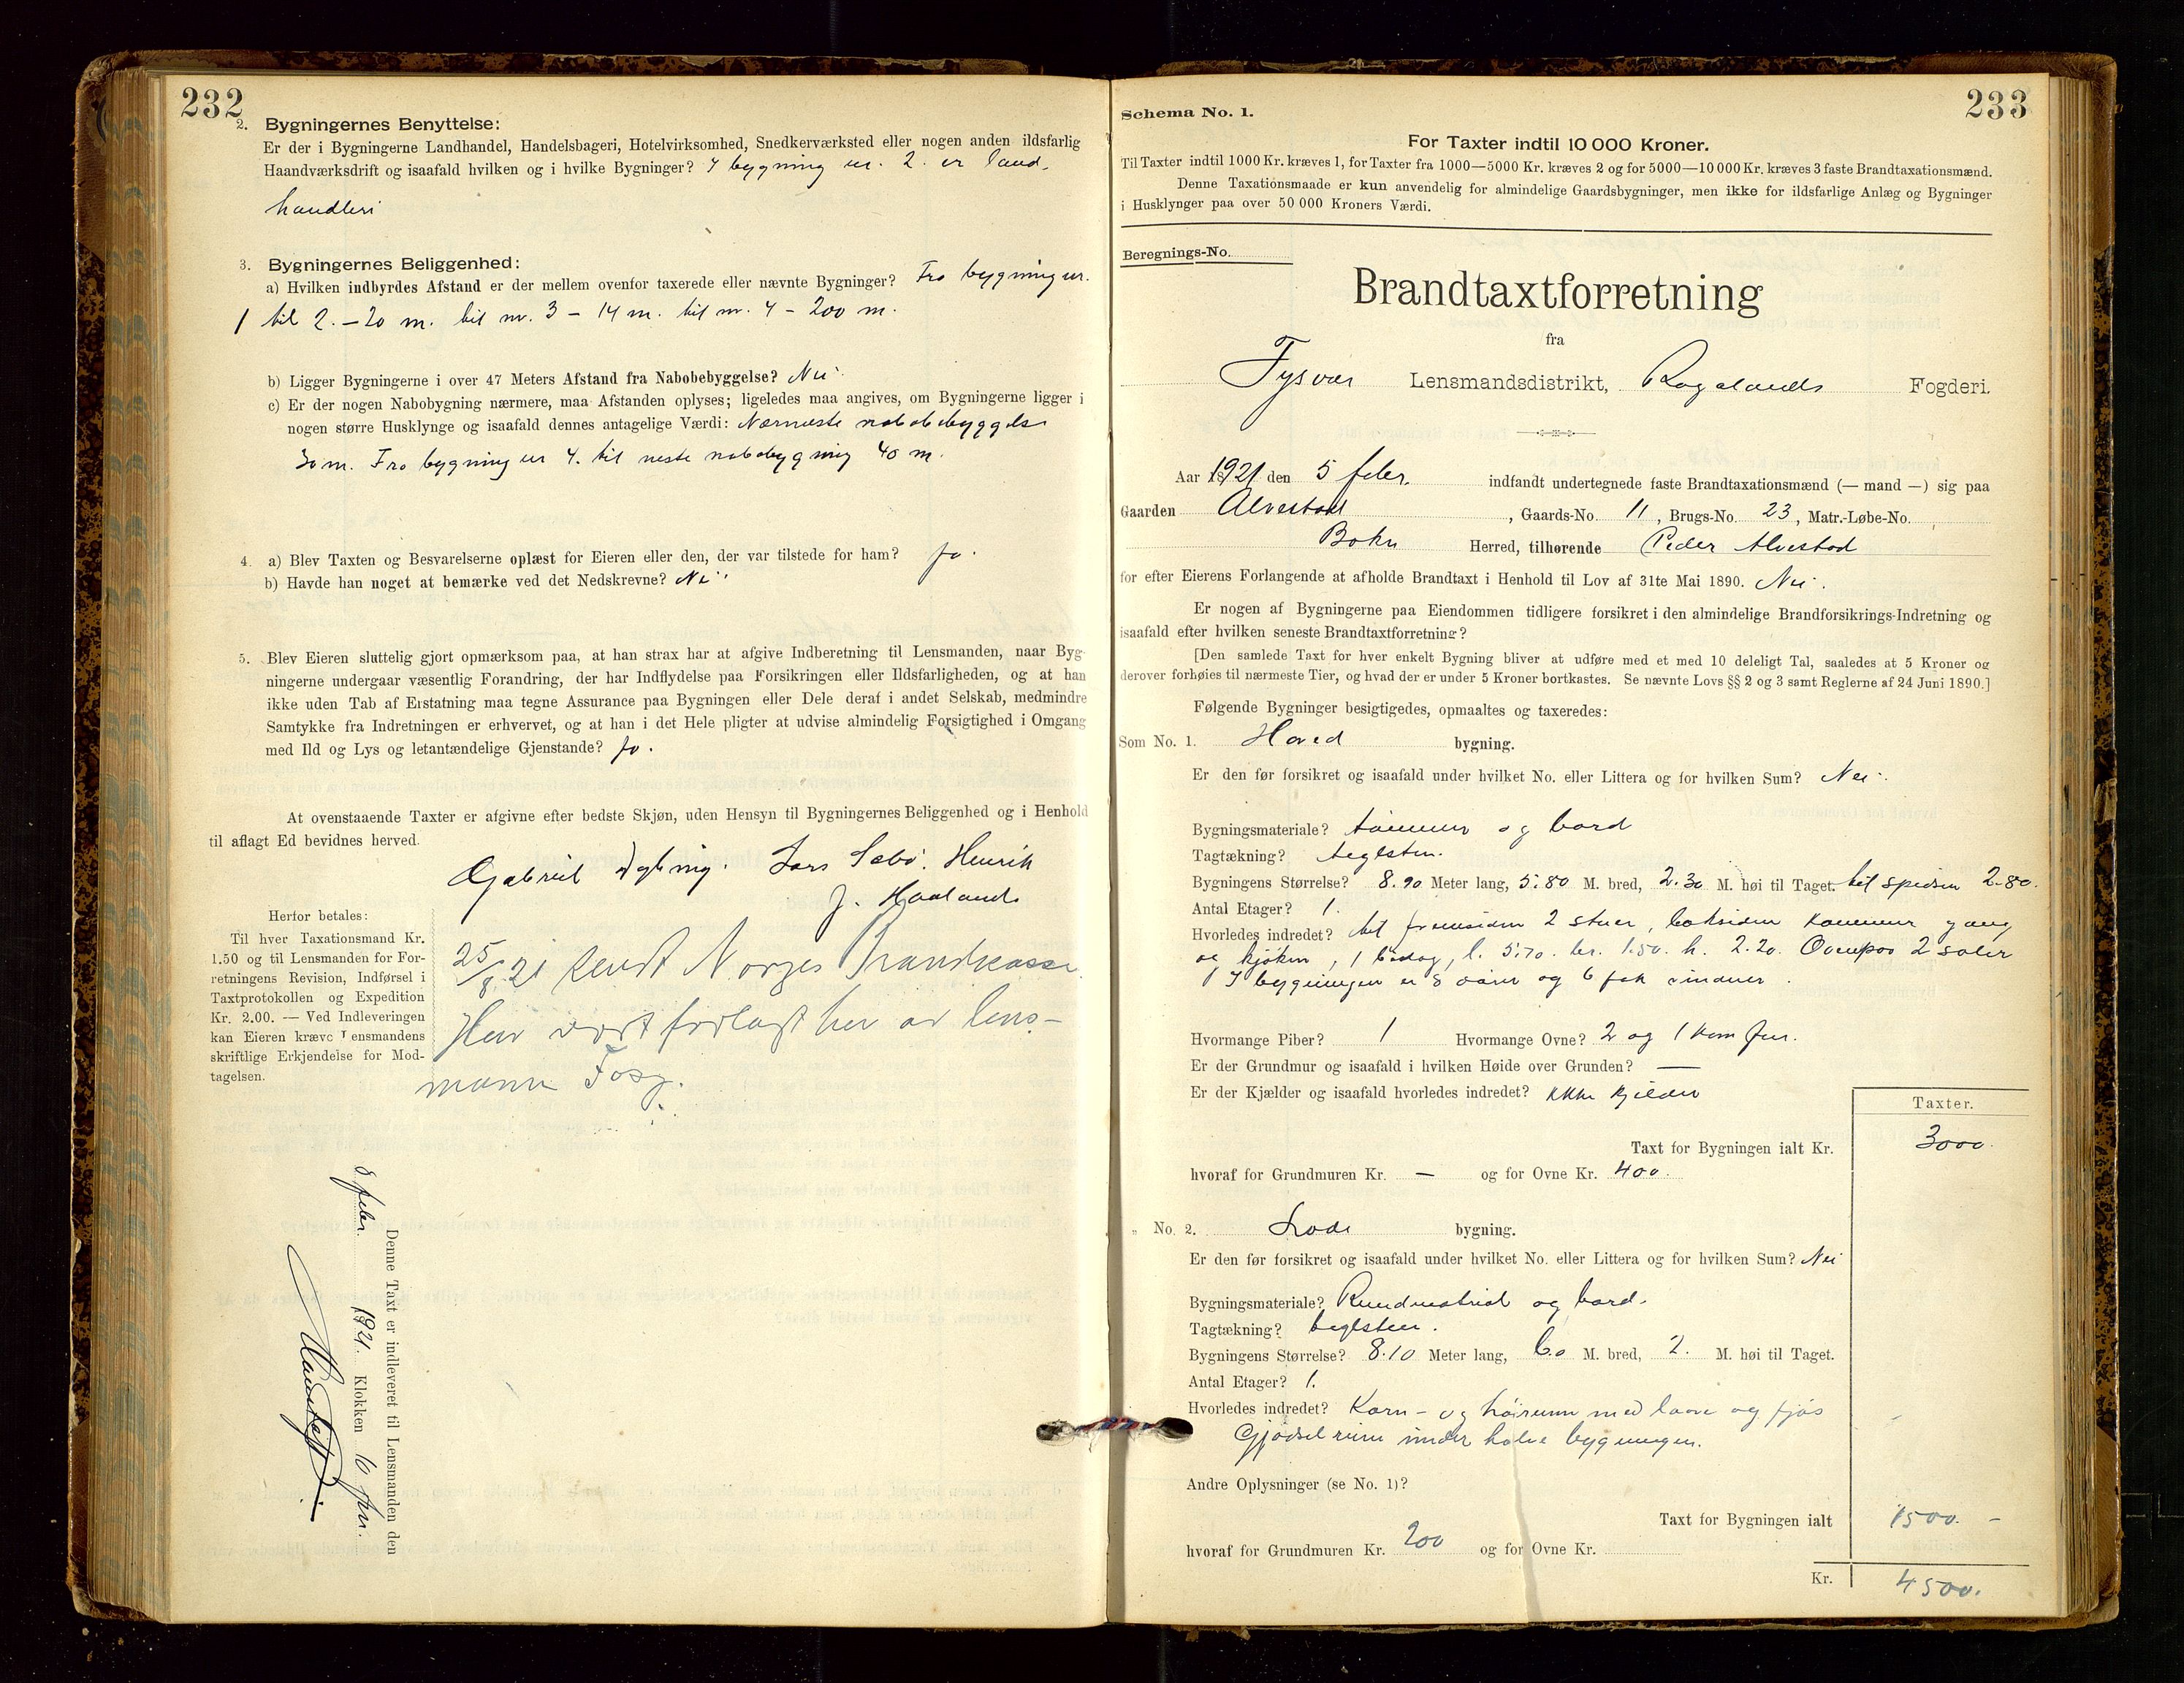 232
2. Bygningernes Benyttelse:
Er der i Bygningerne Landhandel, Handelsbageri, Hotelvirksomhed, Snedkerværksted eller nogen anden ildsfarlig
Haandværksdrift og isaafald hvilken og i hvilke Bygninger? I bygning nr. 2. er land-
handleri
3. Bygningernes Beliggenhed:
a) Hvilken indbyrdes Afstand er der mellem ovenfor taxerede eller nævnte Bygninger? Fra bygning nr.
1 til 2. – 20 m. til nr. 3 – 14 m. til nr. 4 – 200 m.
b) Ligger Bygningerne i over 47 Meters Afstand fra Nabobebyggelse? Nei
c) Er der nogen Nabobygning nærmere, maa Afstanden oplyses; ligeledes maa angives, om Bygningerne ligger i
nogen større Husklynge og isaafald dennes antagelige Værdi: Nærmeste nabobebyggelse
30 m. Fra bygning nr 4. til neste nabobygning 40 m.
4. a) Blev Taxten og Besvarelserne oplæst for Eieren eller den, der var tilstede for ham? Ja.
b) Havde han noget at bemærke ved det Nedskrevne? Nei
5. Blev Eieren sluttelig gjort opmærksom paa, at han strax har at afgive Indberetning til Lensmanden, naar Byg-
ningerne undergaar væsentlig Forandring, der har Indflydelse paa Forsikringen eller Ildsfarligheden, og at han
ikke uden Tab af Erstatning maa tegne Assurance paa Bygningen eller Dele deraf i andet Selskab, medmindre
Samtykke fra Indretningen er erhvervet, og at han i det Hele pligter at udvise almindelig Forsigtighed i Omgang
med Ild og Lys og letantændelige Gjenstande? Ja.
At ovenstaaende Taxter er afgivne efter bedste Skjøn, uden Hensyn til Bygningernes Beliggenhed og i Henhold
til aflagt Ed bevidnes herved.
Gabriel Lars Sebø. Henrik
J. Haaland.
Herfor betales:
Til hver Taxationsmand Kr.
1.50 og til Lensmanden for For-
retningens Revision, Indførsel i
Taxtprotokollen og Expedition
Kr. 2.00. — Ved Indleveringen
kan Eieren kræve Lensmandens
skriftlige Erkjendelse for Mod-
tagelsen.
25/8 21 sendt Norges Brandkasse.
Har vært forlagt her av lens-
mann
Denne Taxt er indleveret til Lensmanden den
8 febr. 1921. Klokken 10 fm.
233
Schema No. 1.
For Taxter indtil 10 000 Kroner.
Til Taxter indtil 1000 Kr. kræves 1, for Taxter fra 1000—5000 Kr. kræves 2 og for 5000—10 000 Kr. kræves 3 faste Brandtaxationsmænd.
Denne Taxationsmaade er kun anvendelig for almindelige Gaardsbygninger, men ikke for ildsfarlige Anlæg og Bygninger
i Husklynger paa over 50 000 Kroners Værdi.
Beregnings-No.
Brandtaxtforretning
fra
Tysvær Lensmandsdistrikt, Rogalands Fogderi.
Aar 1921 den 5 febr. indfandt undertegnede faste Brandtaxationsmænd (— mand —) sig paa
Gaarden Alvestad, Gaards-No. 11, Brugs-No. 23, Matr.-Løbe-No.
Bokn Herred, tilhørende Peder Alvestad
for efter Eierens Forlangende at afholde Brandtaxt i Henhold til Lov af 31te Mai 1890. Nei.
Er nogen af Bygningerne paa Eiendommen tidligere forsikret i den almindelige Brandforsikrings-Indretning og
isaafald efter hvilken seneste Brandtaxtforretning?
[Den samlede Taxt for hver enkelt Bygning bliver at udføre med et med 10 deleligt Tal, saaledes at 5 Kroner og
derover forhøies til nærmeste Tier, og hvad der er under 5 Kroner bortkastes. Se nævnte Lovs §§ 2 og 3 samt Reglerne af 24 Juni 1890.]
Følgende Bygninger besigtigedes, opmaaltes og taxeredes:
Som No. 1. Hoved bygning.
Er den før forsikret og isaafald under hvilket No. eller Littera og for hvilken Sum? Nei.
Bygningsmateriale? tømmer og bord
Tagtækning? teglsten.
Bygningens Størrelse? 8.90 Meter lang, 5.80 M. bred, 2.30 M. høi til Taget. til spidsen 2.80.
Antal Etager? 1.
Hvorledes indredet? til fremsiden 2 stuer, baksiden kammer gang
og kjøken, 1 bislag, l. 5.70. br. 1.50. h. 2.20. Ovenpaa 2 saler
I bygningen er 8 dører og 6 fak vinduer.
Hvormange Piber? 1 Hvormange Ovne? 2 og 1 komfur.
Er der Grundmur og isaafald i hvilken Høide over Grunden? —
Er der Kjælder og isaafald hvorledes indredet? Ikke kjelder
Taxter.
Taxt for Bygningen ialt Kr. 3000.
hvoraf for Grundmuren Kr. — og for Ovne Kr. 400.
„ No. 2. Lade bygning.
Er den før forsikret og isaafald under hvilket No. eller Littera og for hvilken Sum? Nei
Bygningsmateriale? Rundmatrial og bord.
Tagtækning? teglsten.
Bygningens Størrelse? 8.10 Meter lang, 6.0 M. bred, 2. M. høi til Taget.
Antal Etager? 1.
Hvorledes indredet? Korn- og høirum med laave og fjøs
Gjødsel rum under halve bygningen.
Andre Oplysninger (se No. 1)?
Taxt for Bygningen ialt 1500. –
hvoraf for Grundmuren Kr. 200 og for Ovne Kr.
Kr. 4500.